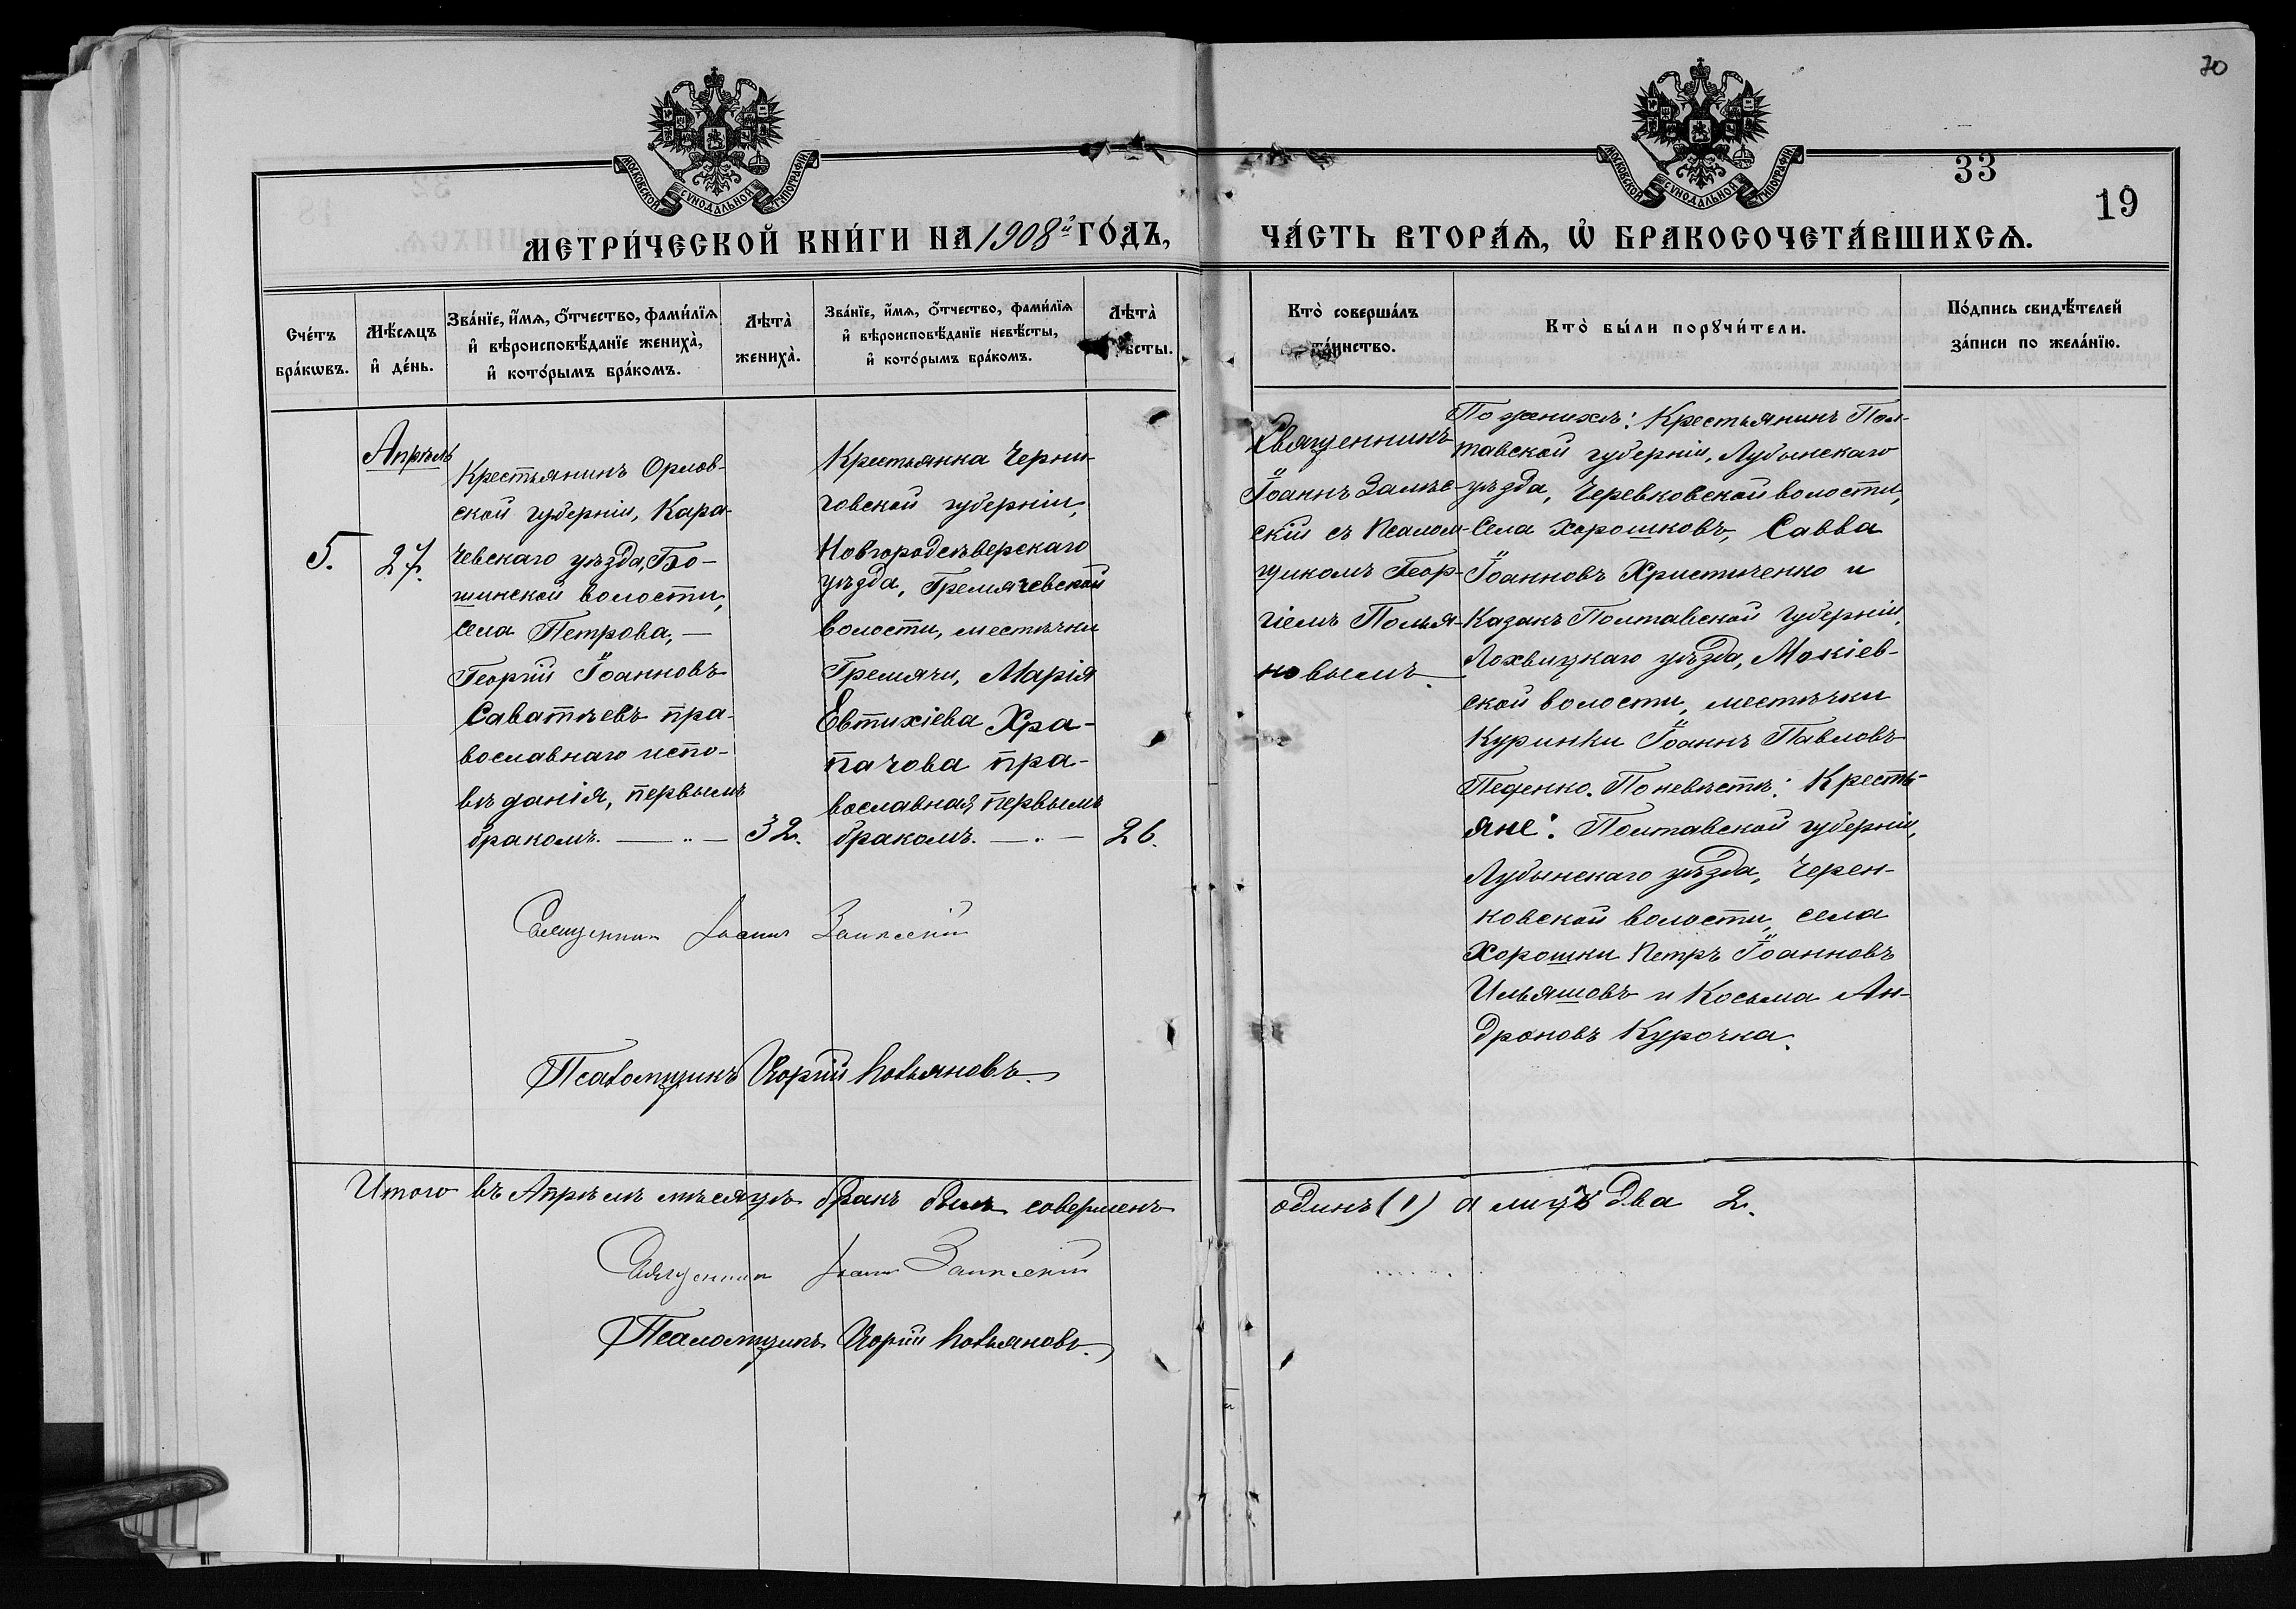 70
33
19
МОСКОВСКОЙ СѴНОДАЛЬНОЙ ТИПОГРАФІИ
МОСКОВСКОЙ СѴНОДАЛЬНОЙ ТИПОГРАФІИ
МЕТРИ́ЧЕСКОЙ КНИ́ГИ НА 1908й ГО́ДЪ,
ЧА́СТЬ ВТОРА́Ѧ, Ѽ БРАКОСОЧЕТА́ВШИХСѦ.
Сче́тъ
бра́кѡвъ.
Мѣ́сѧцъ
и҆ де́нь.
Зва́нїе, и҆́мѧ, ѻ҆́тчество, фами́лїѧ
и҆ вѣроисповѣ́данїе жениха̀,
и҆ кото́рымъ бра́комъ.
Лѣта̀
жениха̀.
Зва́нїе, и҆́мѧ, ѻ҆́тчество, фами́лїѧ
и҆ вѣроисповѣ́данїе невѣ́сты,
и҆ кото́рымъ бра́комъ.
Лѣта̀
ѣсты.
Кто̀ соверша́лъ
та́инство.
Кто̀ бы́ли порꙋчи́тели.
По́дпись свидѣ́телей
за́писи по жела́нїю.
Апрѣль
5.
27.
Крестьянинъ Орлов-
ской губерніи, Кара-
чевскаго уѣзда, Бо-
шинской волости,
села Петрова, —
Георгій Іоанновъ
Саватѣевъ пра-
вославнаго испо-
вѣданія, первымъ
бракомъ. — „ —
32.
Крестьянка Черни-
говской губерніи,
Новгородсѣверскаго
уѣзда, Гремячевской
волости, местѣчки
Гремячи, Марія
Евтихіева Хра-
пачова пра-
вославная первымъ
бракомъ. — „ —
26.
Священникъ
Іоаннъ Замѣс-
скій съ Псалом-
щикомъ Геор-
гіемъ Полья-
новымъ.
По женихѣ: Крестьянинъ Пол-
тавской губерніи, Лубынскаго
уѣзда, Черевковской волости,
Села Хорошковъ, Савва
Іоанновъ Христиченко и
Казакъ Полтавской Губерніи,
Лохвицкаго уѣзда, Мокіев-
ской волости, местѣчки
Куринки Іоаннъ Павловъ
Педенко. По невѣстѣ: Кресть-
яне: Полтавской губерніи,
Лубынскаго уѣзда, Черен-
ковской волости, села
Хорошки Петръ Іоанновъ
Ильяшовъ и Косьма Ан-
дроновъ Курочка.
Священникъ Іоаннъ
Псаломщикъ
Итого въ Апрѣлѣ мѣсяцѣ бракъ былъ совершенъ
одинъ (1) а лицъ два 2.
Священникъ Іоаннъ
Псаломщикъ